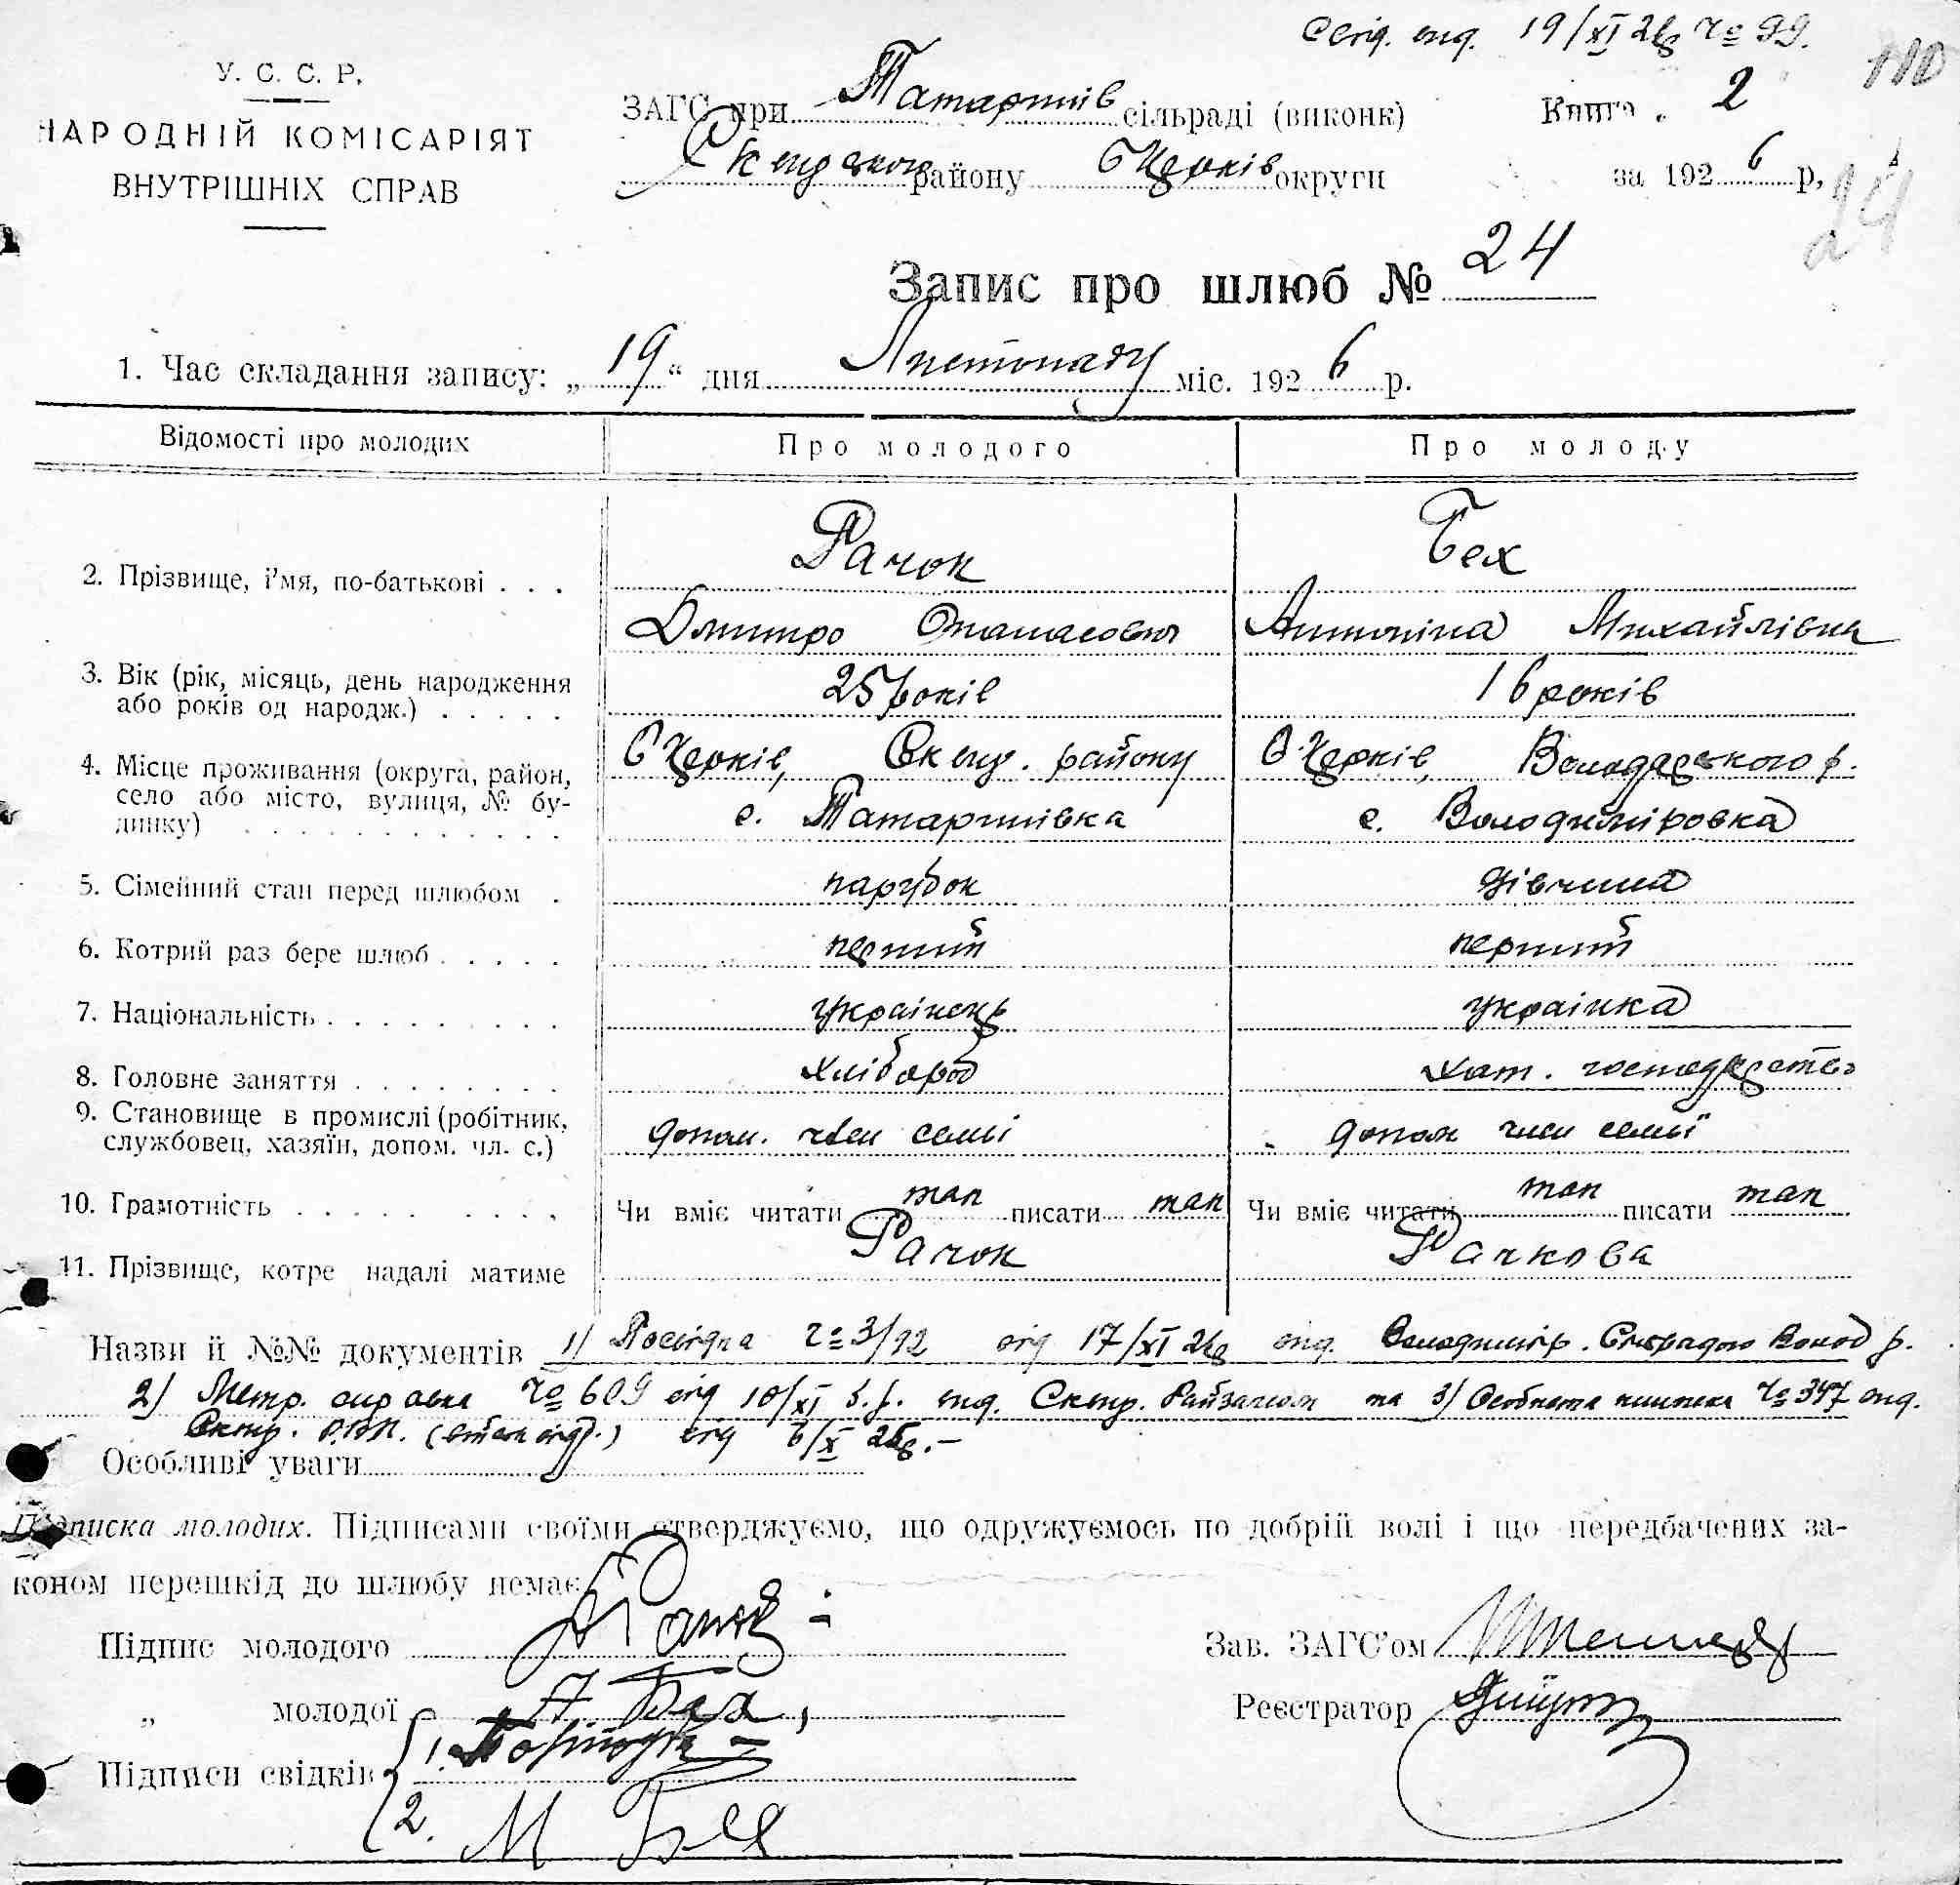 Свід. вид. 19/XI 26р № 99.
110
У. С. С. Р.
НАРОДНІЙ КОМІСАРІЯТ
ВНУТРІШНІХ СПРАВ
ЗАГС при Татаринів сільраді (виконк)
Книга 2
Сквирського району БЦерків округи
за 1926 р,
24
Запис про шлюб № 24
1. Час складання запису: „19“ дня Листопаду міс. 1926 р.
Відомості про молодих Про молодого Про молоду
2. Прізвище, і'мя, по-батькові . . . Рачок Бех
Дмитро Опанасович Антоніна Михайлівна
3. Вік (рік, місяць, день народження
або років од народж.) . . . . . 25 років 16 років
4. Місце проживання (округа, район, БЦерків, Сквир. району Б.Церків, Володарського р.
село або місто, вулиця, № бу-
динку) . . . . . . . . . . . . с. Татаринівка с. Володиміровка
5. Сімейний стан перед шлюбом . парубок дівчина
6. Котрий раз бере шлюб . . . . . перший перший
7. Національність . . . . . . . . . українець українка
8. Головне заняття . . . . . . . . хлібороб хат. господарство
9. Становище в промислі (робітник,
службовец, хазяїн, допом. чл. с.) допом. член семьї допом член семьї
10. Грамотність . . . . . . . . . Чи вміє читати так писати так Чи вміє читати так писати так
11. Прізвище, котре надалі матиме Рачок Рачкова
Назви й №№ документів 1) Посвідка № 3/92 від 17/XI 26р вид. Володимір. Сільрадою Волод р.
2) Метр. справка № 609 від 18/XI б.р. вид. Сквир. Райзагсом та 3) Особиста книжка № 347 вид.
Сквир. Р.В.К. від 6/X 25р.-
Особливі уваги
Підписка молодих. Підписами своїми стверджуємо, що одружуємось по добрій волі і що передбачених за-
коном перешкід до шлюбу немає
Підпис молодого Рачок
Зав. ЗАГС'ом
„ молодої А Бех,
Реєстратор
Підписи свідків 1.
2. М Бех